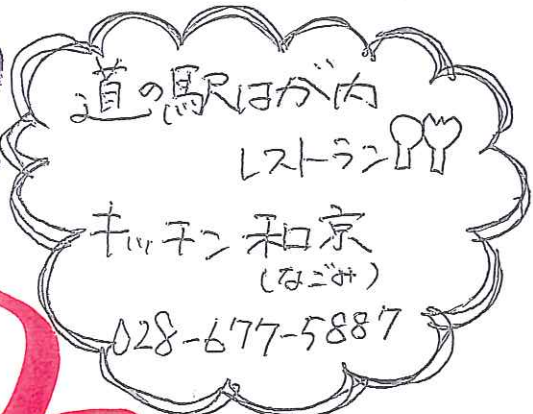 道の駅はが内
レストラン
キッチン 和京
(なごみ)
028-677-5887